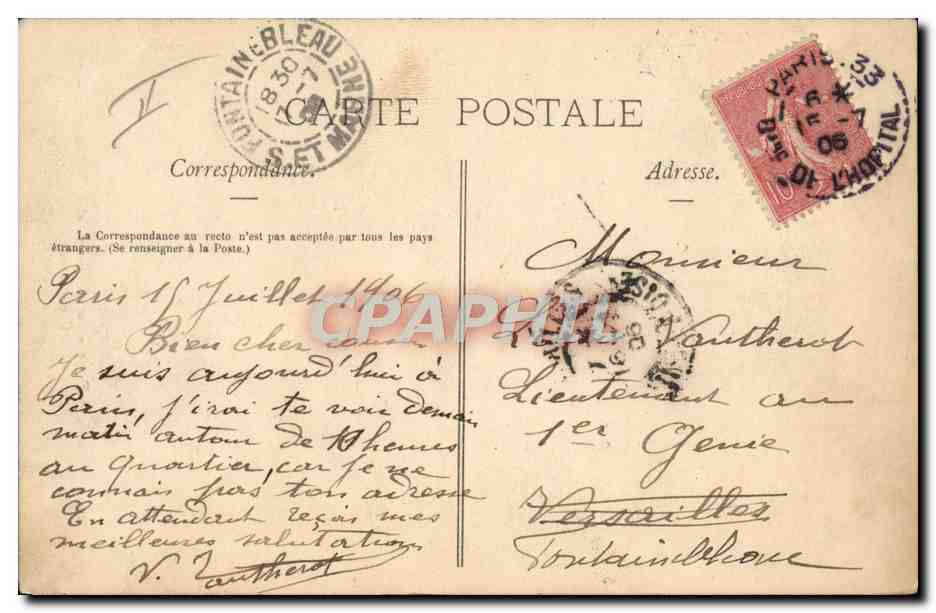 CARTE POSTALE
Correspondance.
La Correspondance au recto n'est pas acceptée par tous les pays
étrangers. (Se renseigner à la Poste.)
Paris 15 Juillet 1906
Bien cher cousin
Je suis aujourd'hui à
Paris, j'irai te voir demain
matin autour de 10 heures
au quartier, car je ne
connais pas ton adresse
En attendant reçois mes
meilleures salutations
V. Vautherot
Adresse.
Monsieur
Vautherot
Lieutenant au
1er Genie
Versailles
Fontainebleau
FONTAINEBLEAU
8 30
S. ET MARNE
PARIS. 33
06
L'HOPITAL
10
CPAPHIL